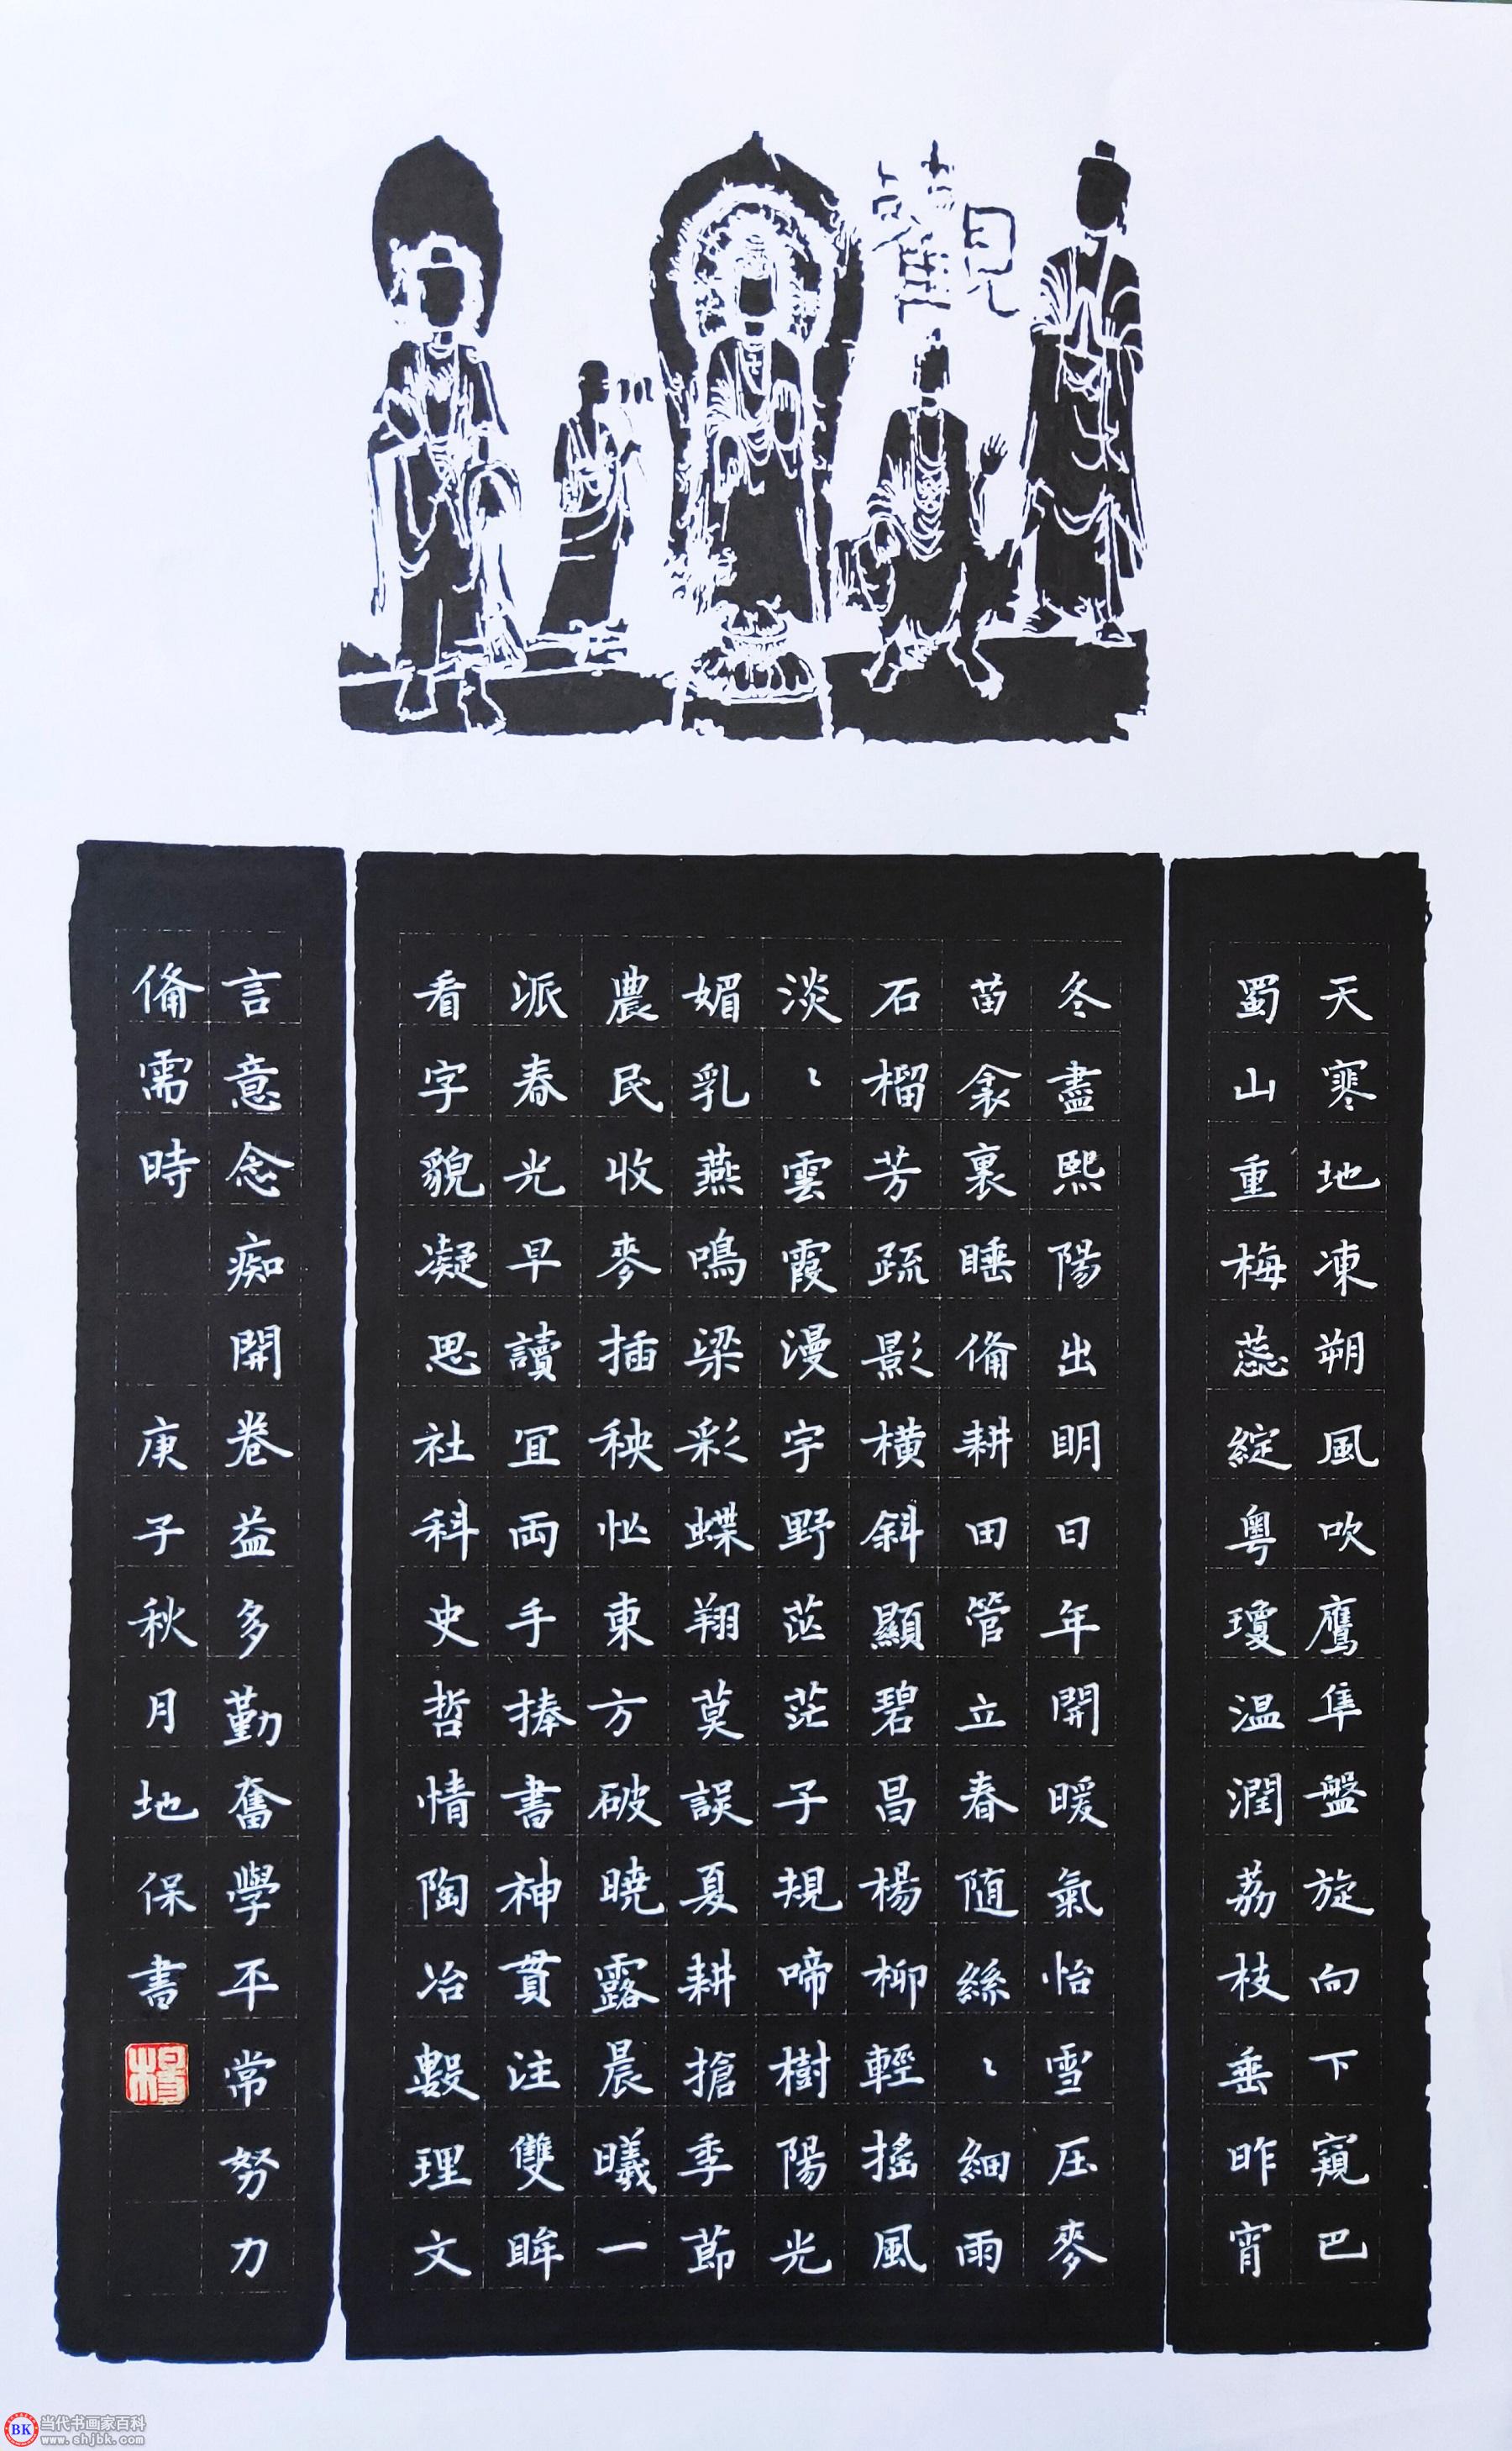 觀
天寒地凍朔風吹鷹隼盤旋向下窺巴
蜀山重梅蕊綻粵瓊温潤荔枝垂昨宵
冬盡熙陽出明日年開暖氣怡雪压麥
苗衾裏睡俻耕田管立春随絲〻細雨
石榴芳疏影横斜顯碧昌楊柳輕搖風
淡〻雲霞漫宇野茫茫子規啼樹陽光
媚乳燕鳴梁彩蝶翔莫誤夏耕搶季節
農民收麥插秧忙東方破曉露晨曦一
派春光早讀宜両手捧書神貫注雙眸
看字貌凝思社科史哲情陶冶數理文
言意念痴開卷益多勤奮學平常努力
俻需時 庚子秋月地保書
楊
BK 当代书画家百科
www.shjbk.com